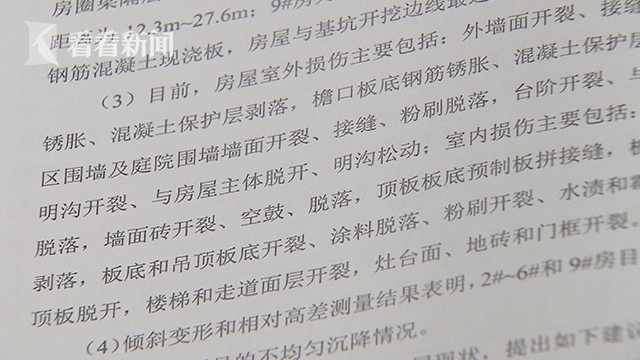 房圈梁隔层
距离为 12.3m~27.6m；9#房
看看新闻
钢筋混凝土现浇板，房屋与基坑开挖边线最
（3）目前，房屋室外损伤主要包括：外墙面开裂、接缝
锈胀、混凝土保护层剥落，檐口板底钢筋锈胀、混凝土保护层
区围墙及庭院围墙墙面开裂、接缝、粉刷脱落，台阶开裂、与
明沟开裂、与房屋主体脱开、明沟松动；室内损伤主要包括：
脱落，墙面砖开裂、空鼓、脱落，顶板板底预制板拼接缝，
剥落，板底和吊顶板底开裂、涂料脱落、粉刷开裂、水渍和霉
顶板脱开，楼梯和走道面层开裂，灶台面、地砖和门框开裂。
（4）倾斜变形和相对高差测量结果表明，2#~6#和 9#房目
的不均匀沉降情况。
现状，提出如下建议